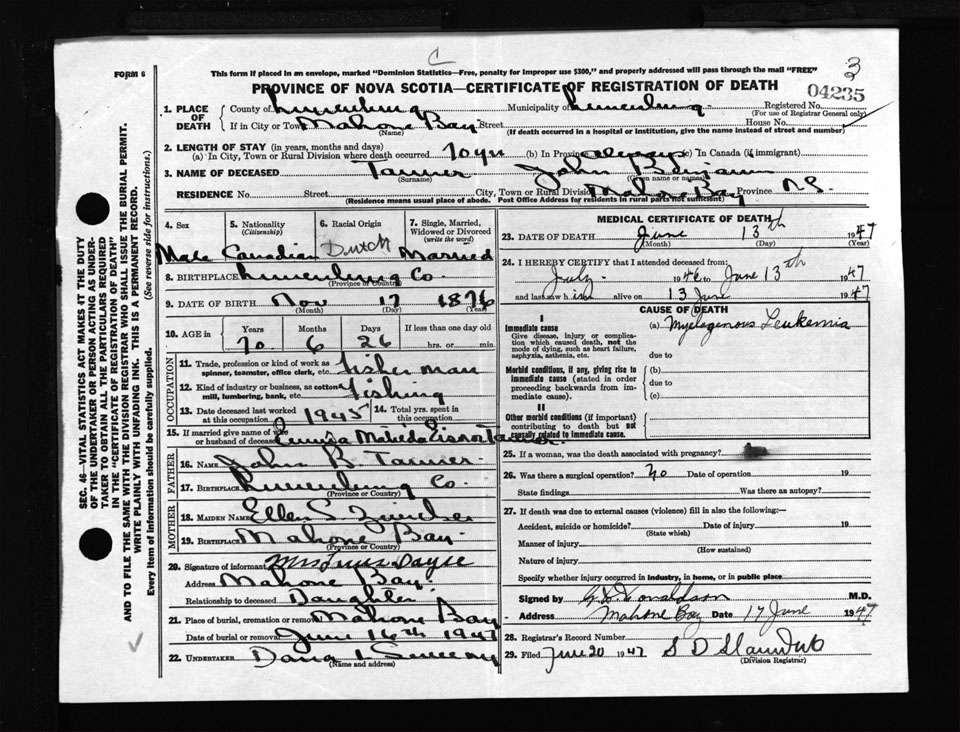 C
3
3
FORM 6
This form if placed in an envelope, marked "Dominion Statistics—Free, penalty for improper use $300," and properly addressed will pass through the mail "FREE"
PROVINCE OF NOVA SCOTIA—CERTIFICATE OF REGISTRATION OF DEATH
04235
1. PLACE OF DEATH County of Lunenburg Municipality of Lunenburg Registered No.
(For use of Registrar General only)
If in City or Town Mahone Bay Street House No.
(Name) (If death occurred in a hospital or institution, give the name instead of street and number)
2. LENGTH OF STAY (in years, months and days)
(a) In City, Town or Rural Division where death occurred 70 yrs (b) In Province always (c) In Canada (if immigrant)
3. NAME OF DECEASED Tanner John Benjamin
(Surname) (Given name or names)
RESIDENCE No. Street City, Town or Rural Division Mahone Bay Province N.S.
(Residence means usual place of abode. Post Office Address for residents in rural parts not sufficient)
4. Sex 5. Nationality 6. Racial Origin 7. Single, Married,
(Citizenship) Widowed or Divorced
(write the word)
Male Canadian Dutch Married
8. BIRTHPLACE Lunenburg Co.
(Province or Country)
9. DATE OF BIRTH Nov 17 1876
(Month) (Day) (Year)
10. AGE in Years Months Days If less than one day old
70 6 26 hrs. or min.
OCCUPATION
11. Trade, profession or kind of work as fisherman
spinner, teamster, office clerk, etc.
12. Kind of industry or business, as cotton fishing
mill, lumbering, bank, etc.
13. Date deceased last worked at this occupation 1945 14. Total yrs. spent in this occupation
15. If married give name of wife or husband of deceased Matilda Tanner
FATHER
16. NAME John B. Tanner
17. BIRTHPLACE Lunenburg Co.
(Province or Country)
MOTHER
18. MAIDEN NAME Ellen S
19. BIRTHPLACE Mahone Bay
(Province or Country)
20. Signature of informant Mrs
Address Mahone Bay
Relationship to deceased Daughter
21. Place of burial, cremation or removal Mahone Bay
Date of burial or removal June 16th 1947
22. UNDERTAKER Dana L Sweeny
(Name and address)
MEDICAL CERTIFICATE OF DEATH
23. DATE OF DEATH June 13th 1947
(Month) (Day) (Year)
24. I HEREBY CERTIFY that I attended deceased from:
July 1946 to June 13th 1947
and last saw him alive on 13 June 1947
CAUSE OF DEATH
I
Immediate cause (a) Myelogenous Leukemia
Give disease, injury or complication which caused death, not the mode of dying, such as heart failure, asphyxia, asthenia, etc.
due to
Morbid conditions, if any, giving rise to immediate cause (stated in order proceeding backwards from immediate cause).
(b)
due to
(c)
II
Other morbid conditions (if important) contributing to death but not causally related to immediate cause.
25. If a woman, was the death associated with pregnancy?
26. Was there a surgical operation? no Date of operation 19
State findings Was there an autopsy?
27. If death was due to external causes (violence) fill in also the following:—
Accident, suicide or homicide? Date of injury 19
(State which)
Manner of injury
(How sustained)
Nature of injury
Specify whether injury occurred in industry, in home, or in public place
Signed by Donaldson M.D.
Address Mahone Bay Date 17 June 1947
28. Registrar's Record Number
29. Filed June 20 1947 S D
(Division Registrar)
SEC. 46—VITAL STATISTICS ACT MAKES IT THE DUTY
OF THE UNDERTAKER OR PERSON ACTING AS UNDER-
TAKER TO OBTAIN ALL THE PARTICULARS REQUIRED
IN THE "CERTIFICATE OF REGISTRATION OF DEATH"
AND TO FILE THE SAME WITH THE DIVISION REGISTRAR WHO SHALL ISSUE THE BURIAL PERMIT.
WRITE PLAINLY WITH UNFADING INK. THIS IS A PERMANENT RECORD.
Every item of information should be carefully supplied. (See reverse side for instructions.)